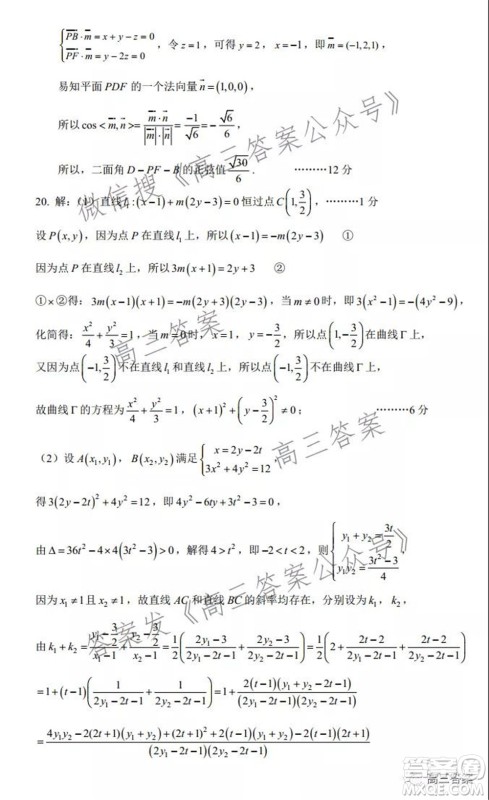 {PB·m = x + y − z = 0
PF·m = y − 2z = 0 ，令 z = 1，可得 y = 2，x = −1，即 m = (−1,2,1)，
易知平面 PDF 的一个法向量 n = (1,0,0)，
所以 cos < m,n > = m·n / |m|·|n| = −1/√6 = −√6/6，
所以，二面角 D − PF − B 的正弦值 √30/6 . ………12 分
20. 解：（1）直线 l₁：(x−1)+m(2y−3)=0 恒过点 C(1, 3/2)，………1 分
设 P(x,y)，因为点 P 在直线 l₁ 上，所以 (x−1)=−m(2y−3) ①
因为点 P 在直线 l₂ 上，所以 3m(x+1)=2y+3 ②
①×②得：3m(x−1)(x+1)=−m(2y+3)(2y−3)，当 m≠0 时，即 3(x²−1)=−(4y²−9)，
化简得：x²/4 + y²/3 = 1，当 m=0 时，x=1，y=−3/2，所以点 (1,−3/2) 在曲线 Γ 上，
又因为点 (−1, 3/2) 不在直线 l₁ 和直线 l₂ 上，所以点 (−1, 3/2) 不在曲线 Γ 上，
故曲线 Γ 的方程为 x²/4 + y²/3 = 1，(x+1)² + (y−3/2)² ≠ 0； ………6 分
（2）设 A(x₁,y₁)，B(x₂,y₂) 满足 {x=2y−2t
3x²+4y²=12，
得 3(2y−2t)²+4y²=12，即 4y²−6ty+3t²−3=0，
由 Δ=36t²−4×4(3t²−3)>0，解得 4>t²，即 −2<t<2，则 {y₁+y₂=3t/2
y₁y₂=(3t²−3)/4
因为 x₁≠1 且 x₂≠1，故直线 AC 和直线 BC 的斜率均存在，分别设为 k₁，k₂，
由 k₁+k₂ = (y₁−3/2)/(x₁−1) + (y₂−3/2)/(x₂−1) = 1/2((2y₁−3)/(2y₁−2t−1) + (2y₂−3)/(2y₂−2t−1)) = 1/2(2 + (2t−2)/(2y₁−2t−1) + (2t−2)/(2y₂−2t−1))
= 1+(t−1)(1/(2y₁−2t−1) + 1/(2y₂−2t−1)) = 1 + 2(t−1)(y₁+y₂−2t−1)/((2y₁−2t−1)(2y₂−2t−1))
= (4y₁y₂−2(2t+1)(y₁+y₂)+(2t+1)²+2(t−1)(y₁+y₂)−2(t−1)(2t+1))/((2y₁−2t−1)(2y₂−2t−1))
微信搜《高三答案公众号》
高三答案
高三答案
答案发《高三答案公众号》
高三答案
答案圈
MXQE.COM